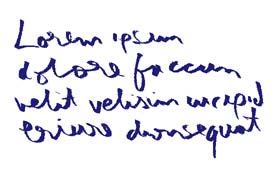 Lorem ipsum
dolore faccum
velit velisim incipid
eriure dionsequat